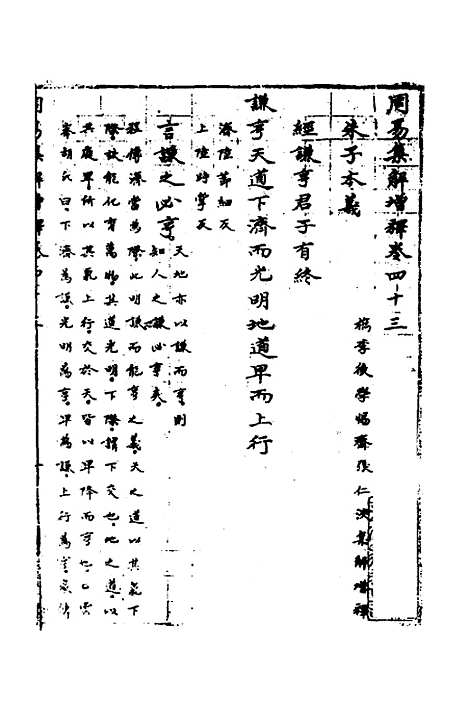 周易集解增釋卷四十三
檇李後學惕齋張仁浹集解增釋
朱子本義
經謙亨君子有終
謙亨天道下濟而光明地道卑而上行
濟陸節細反
上陸時掌反
言謙之必亨
天地亦以謙而亨則
知人之謙必亨矣
程傳濟當為際此明謙而能亨之義天之道以其氣下
際故能化育萬物其道光明下際謂下交也地之道以
其處卑所以其氣上行交於天皆以卑降而亨也
案胡氏曰下濟為謙光明為亨卑為謙上行為亨